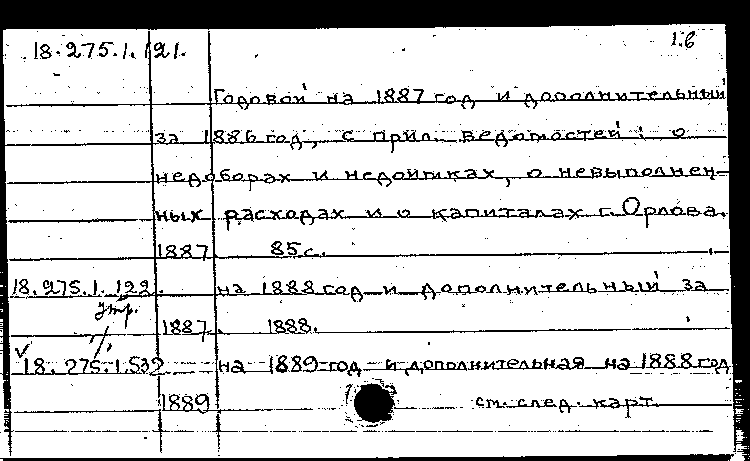 18.275.1.121. 1.6
Годовой на 1887 год и дополнительный
за 1886 год, с прил. ведомостей: о
недоборах и недоимках, о невыполнен-
ных расходах и о капиталах г. Орлова.
1887. 85 с.
18.275.1.122. на 1888 год и дополнительный за
утр.
1887. 1888.
18.275.1.532 на 1889 год и дополнительная на 1888 год
1889 см. след. карт.